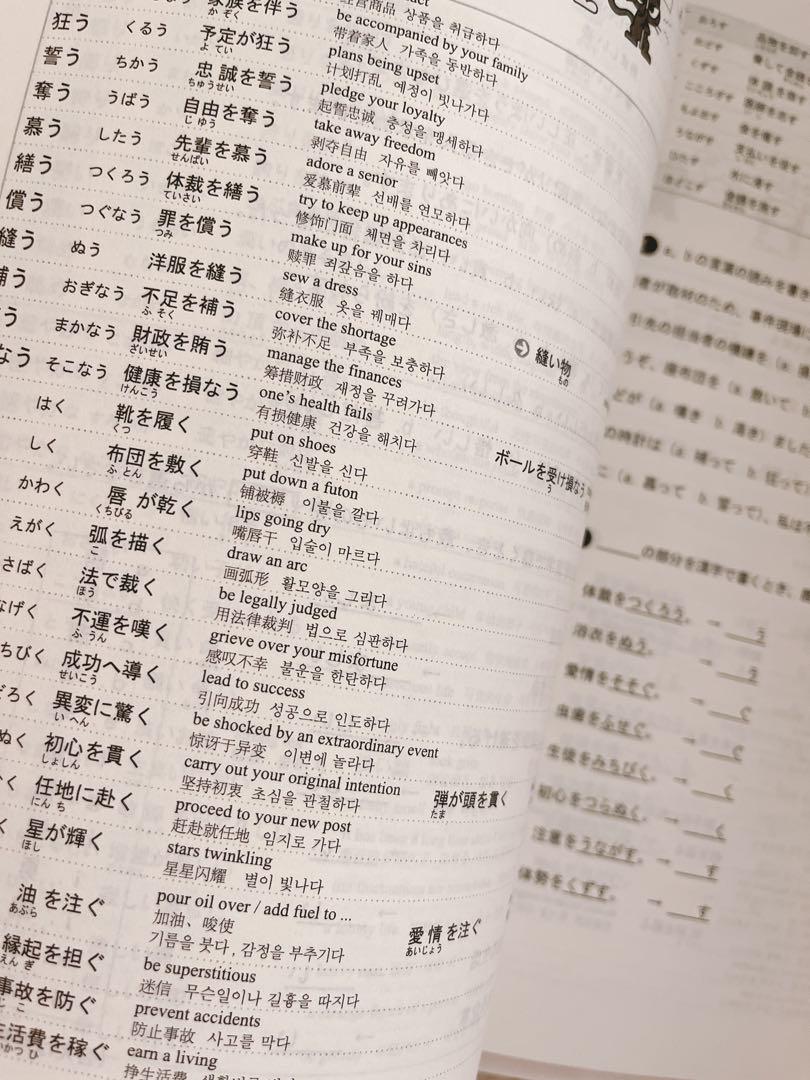 家族を伴う
かぞく
经营商品 상품을 취급하다
be accompanied by your family
带着家人 가족을 동반하다
狂う くるう 予定が狂う
よてい
plans being upset
计划打乱 예정이 빗나가다
誓う ちかう 忠誠を誓う
ちゅうせい
pledge your loyalty
起誓忠诚 충성을 맹세하다
奪う うばう 自由を奪う
じゆう
take away freedom
剥夺自由 자유를 빼앗다
慕う したう 先輩を慕う
せんぱい
adore a senior
爱慕前辈 선배를 연모하다
繕う つくろう 体裁を繕う
ていさい
try to keep up appearances
修饰门面 체면을 차리다
償う つぐなう 罪を償う
つみ
make up for your sins
赎罪 죄갚음을 하다
縫う ぬう 洋服を縫う
sew a dress
缝衣服 옷을 꿰매다
縫い物
もの
補う おぎなう 不足を補う
ふそく
cover the shortage
弥补不足 부족을 보충하다
う まかなう 財政を賄う
ざいせい
manage the finances
筹措财政 재정을 꾸려가다
なう そこなう 健康を損なう
けんこう
one's health fails
有损健康 건강을 해치다
ボールを受け損なう
う
はく 靴を履く
くつ
put on shoes
穿鞋 신발을 신다
しく 布団を敷く
ふとん
put down a futon
铺被褥 이불을 깔다
かわく 唇が乾く
くちびる
lips going dry
嘴唇干 입술이 마르다
えがく 弧を描く
こ
draw an arc
画弧形 활모양을 그리다
さばく 法で裁く
ほう
be legally judged
用法律裁判 법으로 심판하다
なげく 不運を嘆く
ふうん
grieve over your misfortune
感叹不幸 불운을 한탄하다
ちびく 成功へ導く
せいこう
lead to success
引向成功 성공으로 인도하다
どろく 異変に驚く
いへん
be shocked by an extraordinary event
惊讶于异变 이변에 놀라다
ぬく 初心を貫く
しょしん
carry out your original intention
坚持初衷 초심을 관절하다
弾が頭を貫く
たま
く 任地に赴く
にんち
proceed to your new post
赶赴就任地 임지로 가다
く 星が輝く
ほし
stars twinkling
星星闪耀 별이 빛나다
油を注ぐ
あぶら
pour oil over / add fuel to ...
加油、唆使
기름을 붓다, 감정을 부추기다
愛情を注ぐ
あいじょう
縁起を担ぐ
えんぎ
be superstitious
迷信 무슨일이나 길흉을 따지다
事故を防ぐ
じこ
prevent accidents
防止事故 사고를 막다
生活費を稼ぐ
いかつひ
earn a living
挣生活费
おろす
おどす
くずす
こころざす
もよおす
うながす
ひたす
ほどこす
a、bの言葉の読みを書き
者が取材のため、事件現場に
引先の担当者の機嫌を（a.
うぞ、座布団を（a. 敷いて
どが（a. 嘆き b. 渇き）ました
の時計は（a. 
の部分を漢字で書くとき、
体裁をつくろう。 → う
浴衣をぬう。 → う
愛情をそそぐ。 → ぐ
虫歯をふせぐ。 → ぐ
生徒をみちびく。 → く
初心をつらぬく。 → く
注意をうながす。 → す
体勢をくずす。 → す